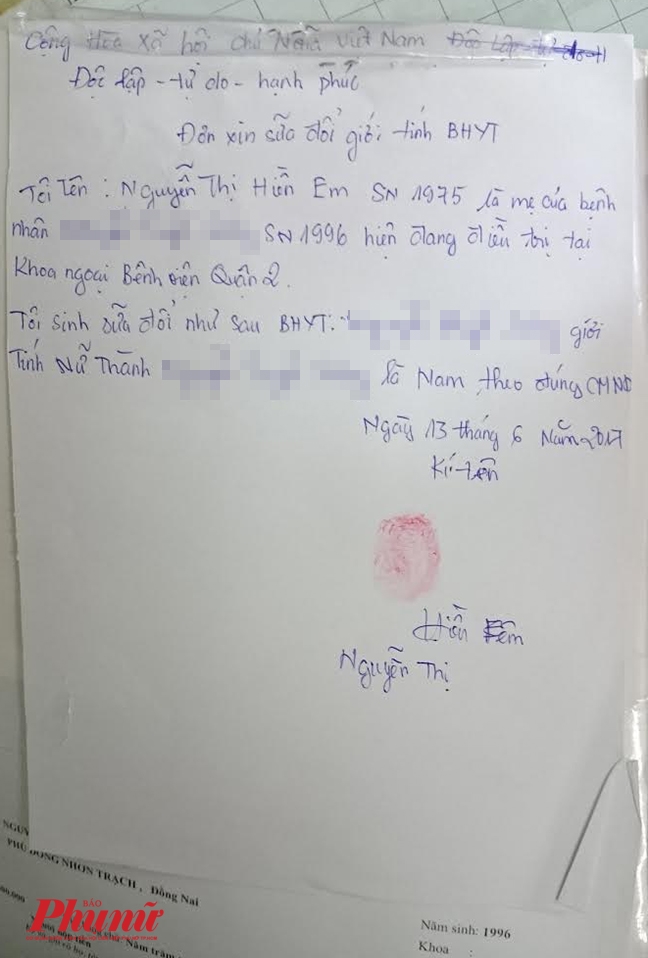 Cộng Hòa xã hội chủ Nghĩa Việt Nam
Độc lập - tự do - hạnh phúc
Đơn xin sữa đổi giới tính BHYT
Tôi tên : Nguyễn Thị Hiền Em SN 1975 là mẹ của bệnh
nhân SN 1996 hiện đang điều trị tại
Khoa ngoại Bênh viện Quận 2.
Tôi sinh sữa đổi như sau BHYT: giới
Tính Nữ Thành là Nam theo đúng CMND
Ngày 13 tháng 6 Năm 2017
Kí tên
Hiền Em
Nguyễn Thị
PHÚ ĐÔNG NHƠN TRẠCH , Đồng Nai
Năm sinh: 1996
Khoa :
BÁO
Phụ nữ